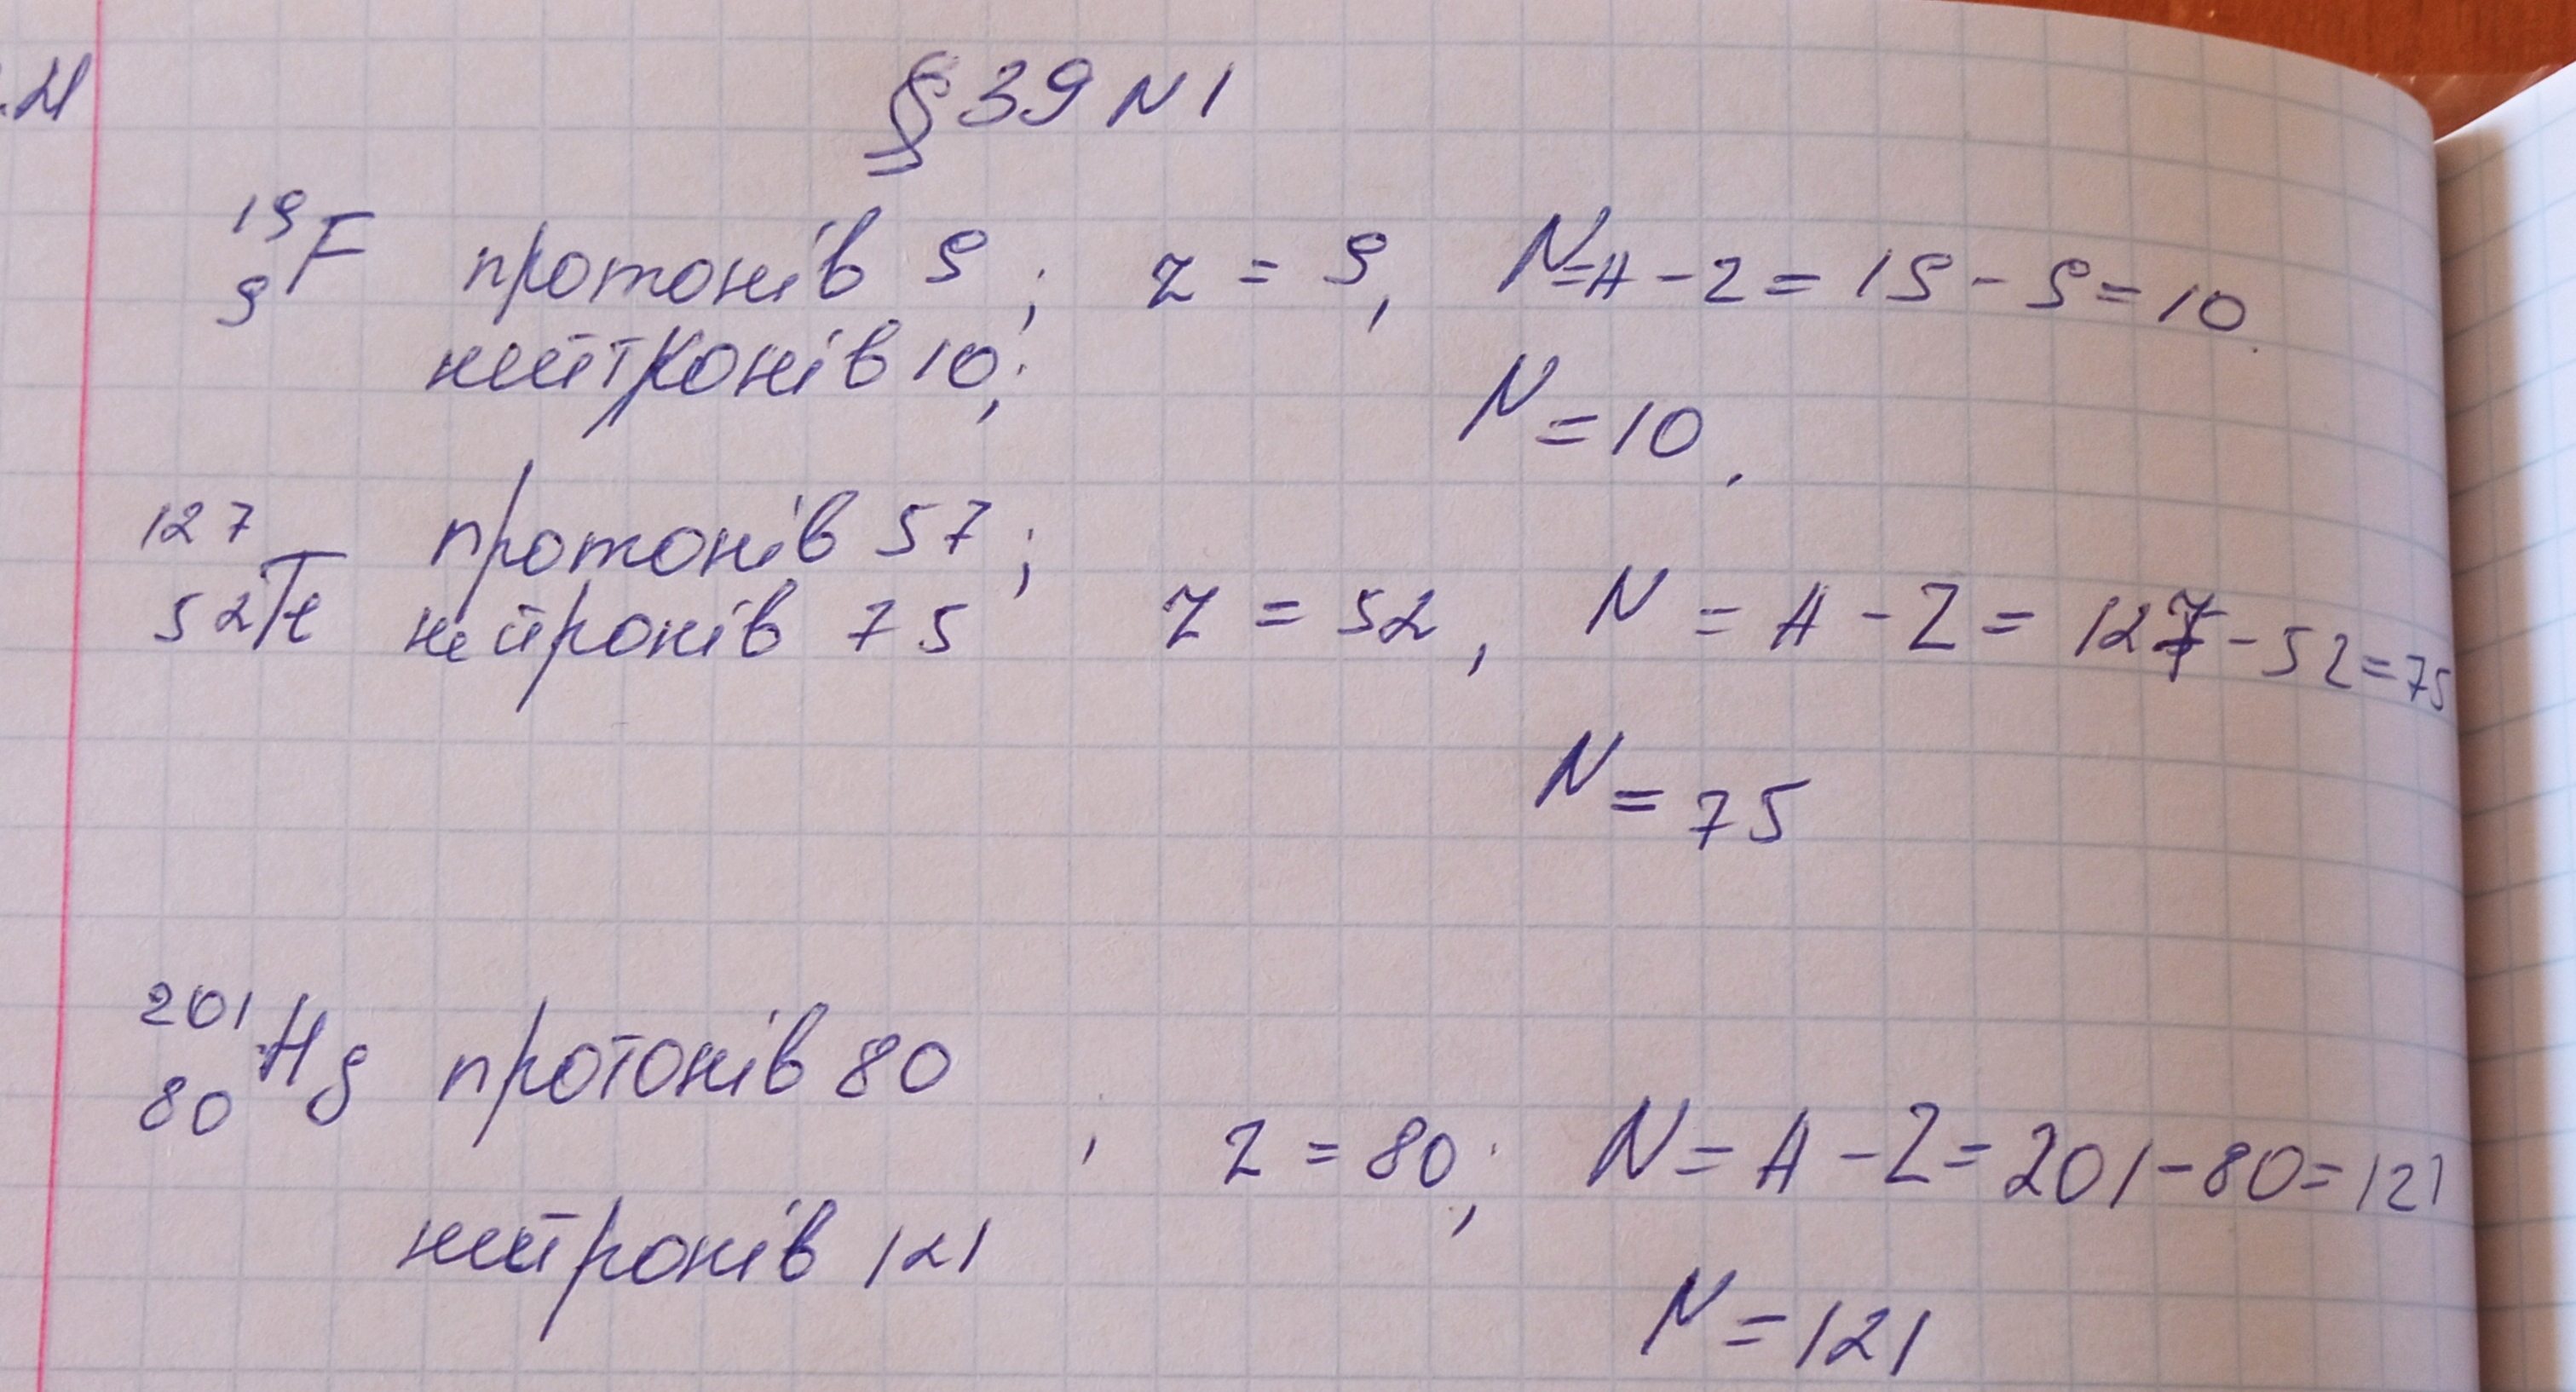 § 39 N 1
¹⁹₉F протонів 9; z = 9, N=A-Z = 19-9=10.
нейтронів 10; N=10.
¹²⁷₅₂Te протонів 57;
нейронів 75 z = 52, N = A-Z = 127-52=75
N = 75
²⁰¹₈₀Hg протонів 80
; z = 80; N = A-Z = 201-80=121
нейтронів 121
N = 121